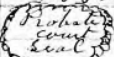 Probate
court
seal